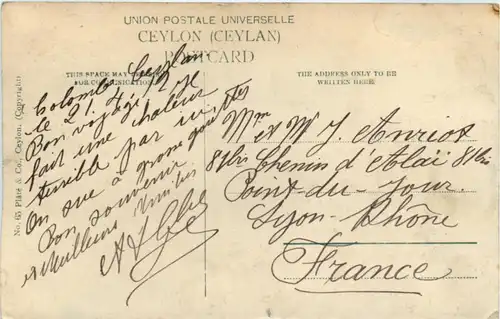 UNION POSTALE UNIVERSELLE
CEYLON (CEYLAN)
POSTCARD
THIS SPACE MAY BE USED
FOR COMMUNICATION
THE ADDRESS ONLY TO BE
WRITTEN HERE
No. 65 Plâté & Co., Ceylon. (Copyright)
Colombo Ceylan
le 21.4.
Bon voyage il
fait une chaleur
terrible par ici
On sue à grosse
Bon souvenir
et Meilleurs
Mme et Mr J. Anriot
81bis Chenin d'Alaï 81bis
Point-du-Jour
Lyon-Rhône
France